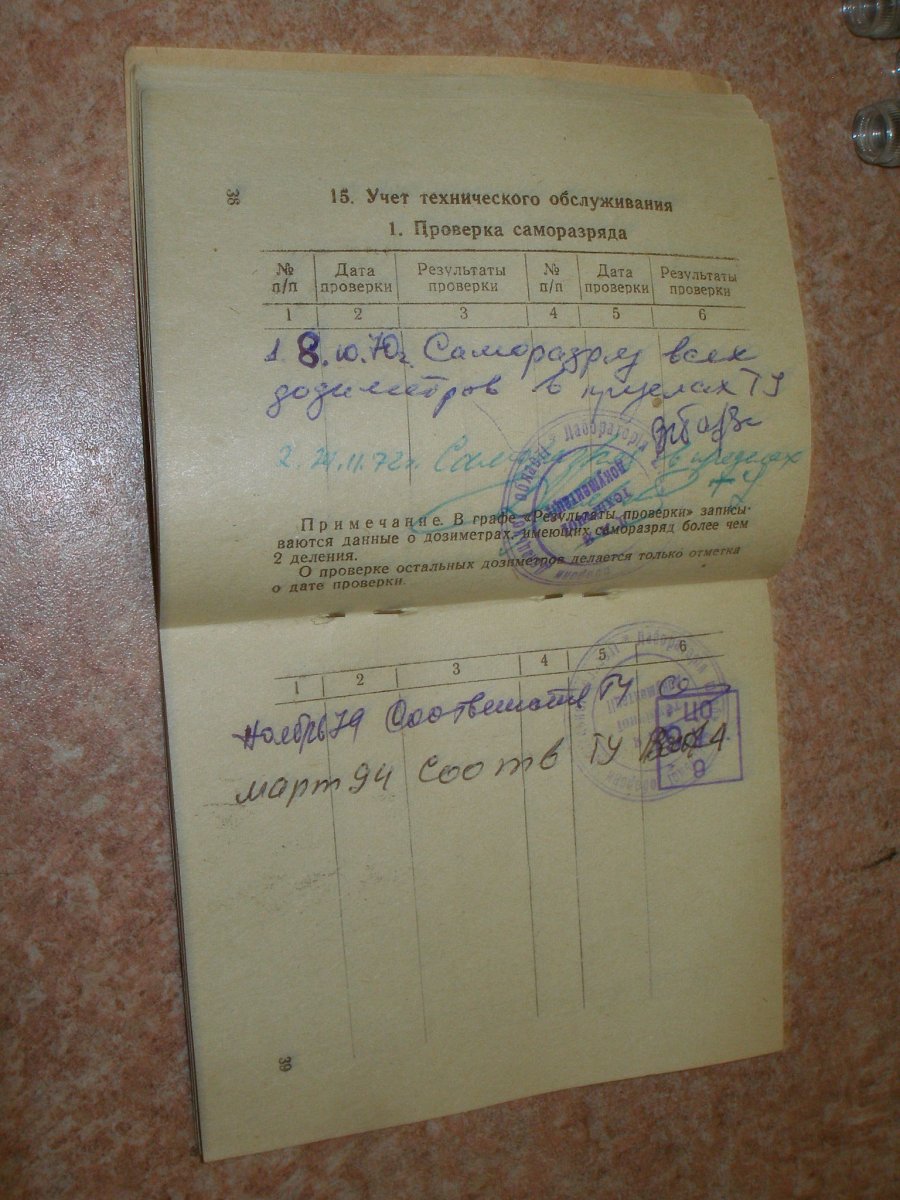 38
15. Учет технического обслуживания
1. Проверка саморазряда
№ п/п Дата проверки Результаты проверки № п/п Дата проверки Результаты проверки
1 2 3 4 5 6
1. 8.10.70г. Саморазряд всех
дозиметров в пределах ТУ
2. 24.11.72г. в пределах
ТУ
Лабораторія
технічної
документації
Примечание. В графе «Результаты проверки» записы-
ваются данные о дозиметрах, имеющих саморазряд более чем
2 деления.
О проверке остальных дозиметров делается только отметка
о дате проверки.
1 2 3 4 5 6
Ноябрь 79 Соответств ТУ
март 94 Соотв ТУ
39